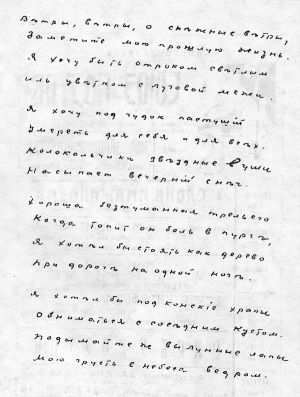 Вѣтры, вѣтры, о снѣжные вѣтры,
Заметите мою прошлую жизнь.
Я хочу быть отроком свѣтлым
Иль цвѣтком с луговой межи.
Я хочу под гудок пастуший
Умереть для себя и для всѣх.
Колокольчики звѣздные в уши
Насыпает вечерній снѣг.
Хороша безтуманная трель его
Когда топит он боль в пургѣ.
Я хотѣл бы стоять как дерево
При дорогѣ на одной ногѣ.
Я хотѣл бы под конскіе храпы
Обниматься с сосѣдним кустом.
Подымайте ж вы лунные лапы
Мою грусть в небеса ведром.